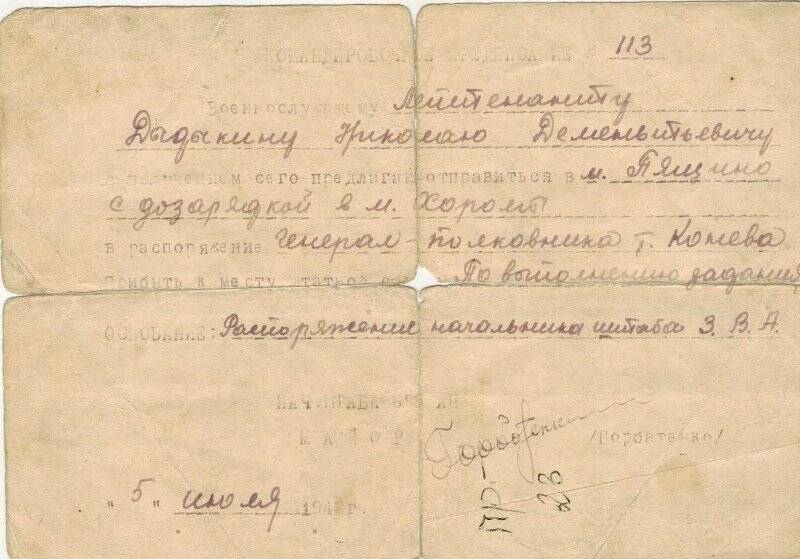 КОМАНДИРОВОЧНОЕ ПРЕДПИСАНИЕ № 113
Военнослужащему Лейтенанту
Дыдыкину Николаю Дементьевичу
с получением сего предлагаю отправиться в м. Пящино
с дозарядкой в м. Хоромы
в распоряжение Генерал-полковника т. Конева
Прибыть к месту штатной По выполнению задания
ОСНОВАНИЕ: Распоряжение начальника штаба 3. В. А.
НАЧ.ШТАБА АП
МАЙОР Горбатенко /Горбатенко/
"5" июля 194 г.
пр.
23